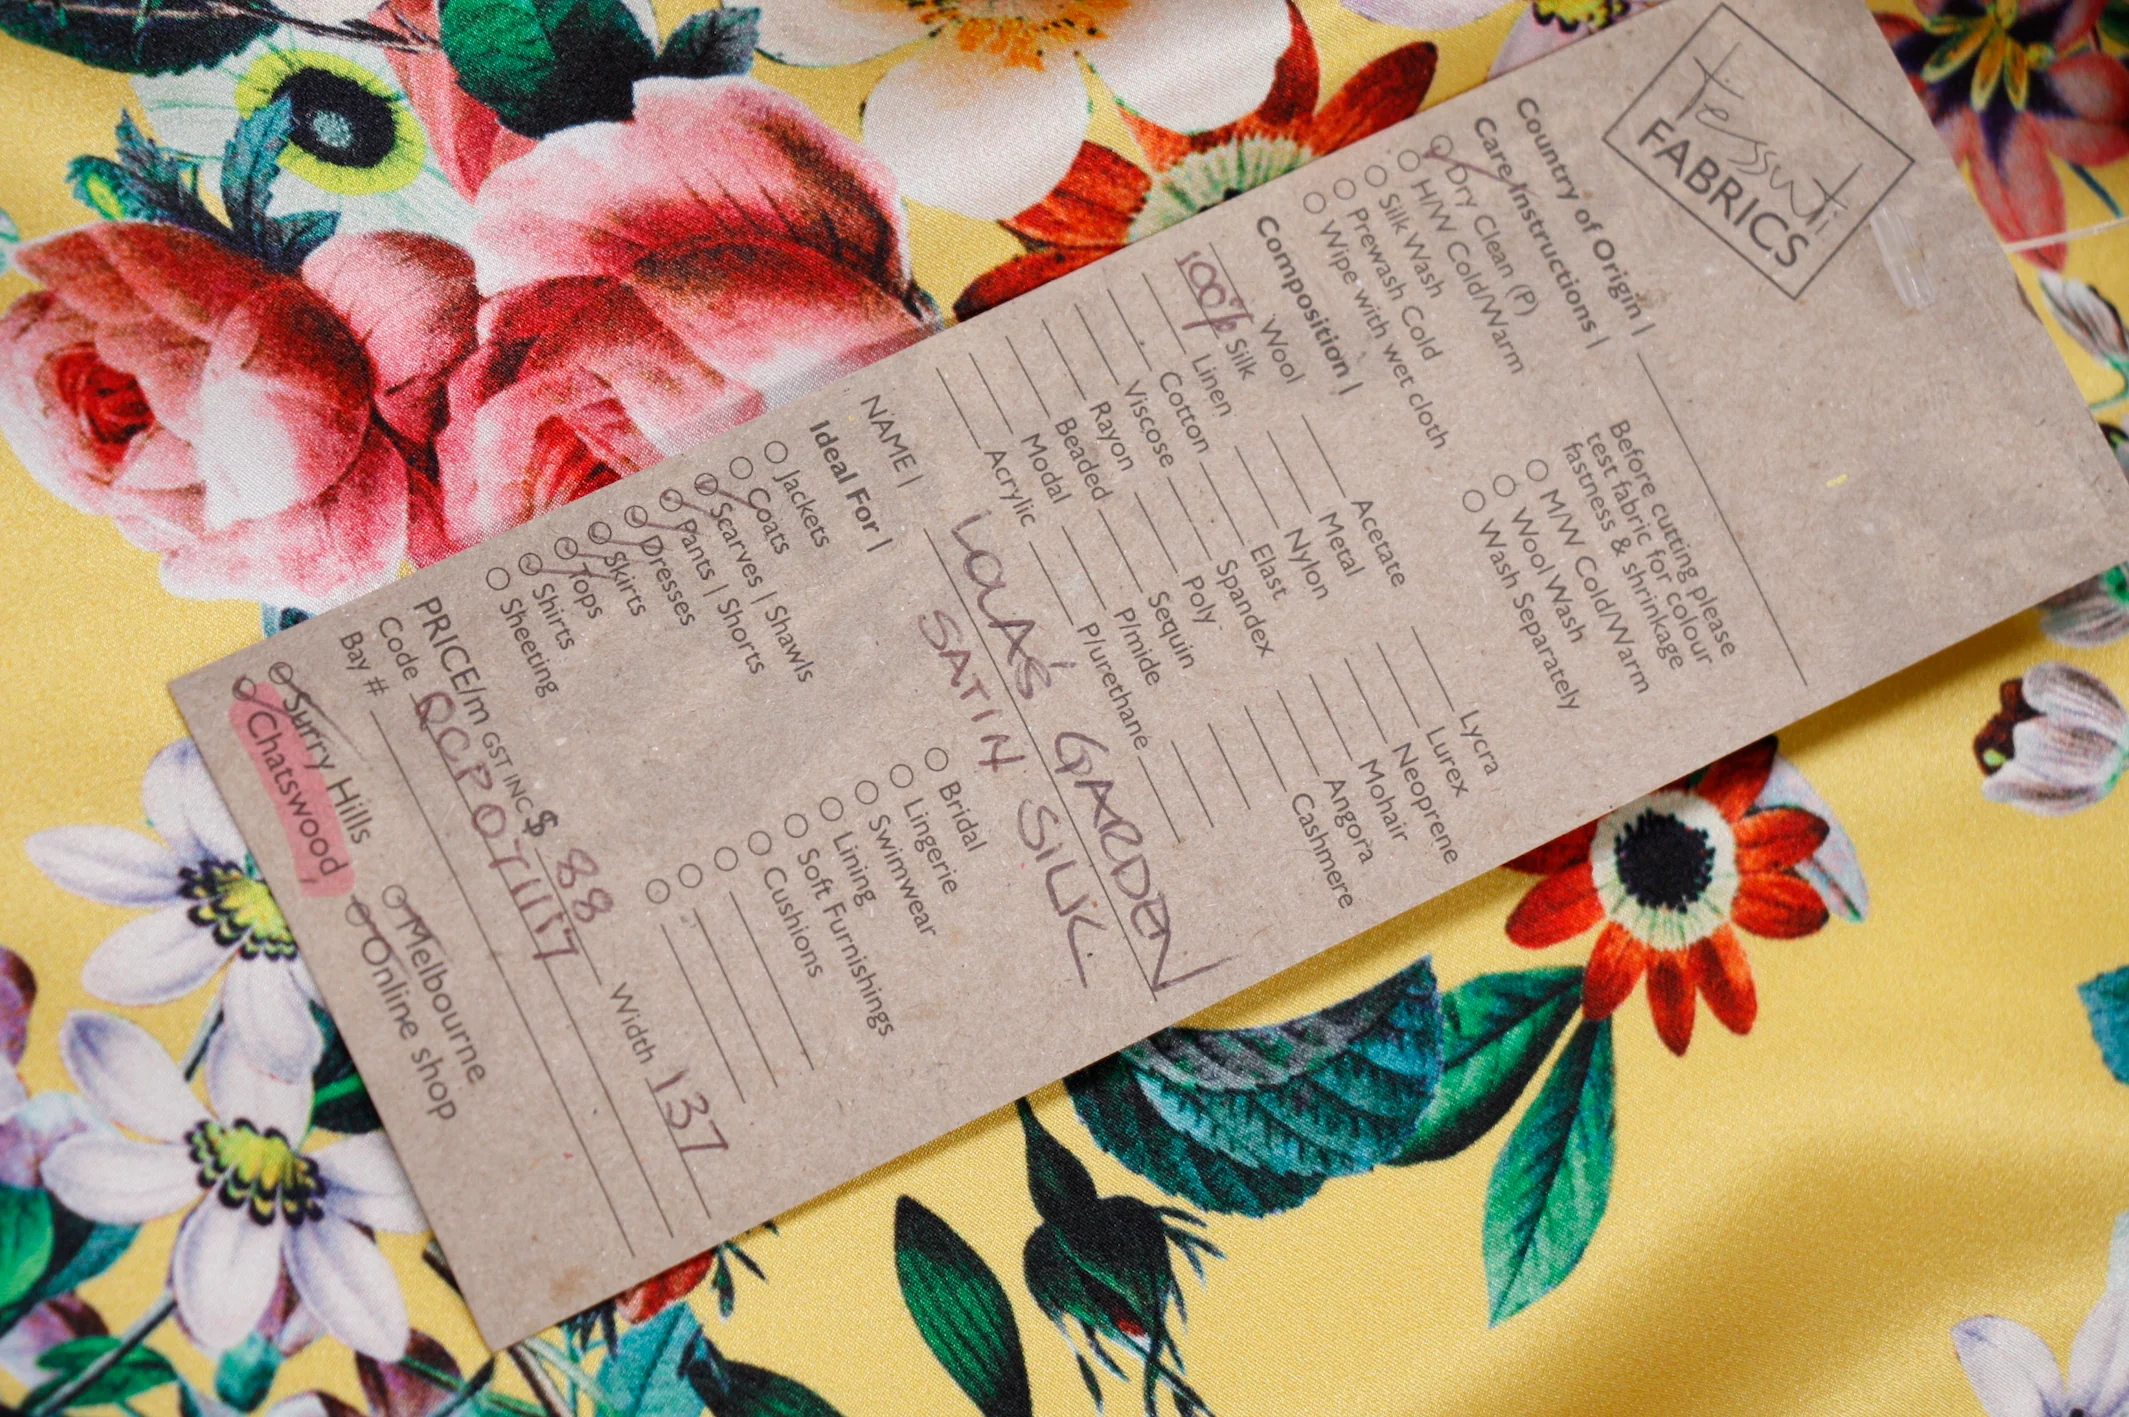 tessuti
FABRICS
Country of Origin |
Care Instructions |
Before cutting please
test fabric for colour
fastness & shrinkage
Dry Clean (P)
H/W Cold/Warm
Silk Wash
Prewash Cold
Wipe with wet cloth
M/W Cold/Warm
Wool Wash
Wash Separately
Composition |
Wool Acetate Lycra
100% Silk Metal Lurex
Linen Nylon Neoprene
Cotton Elast Mohair
Viscose Spandex Angora
Rayon Poly Cashmere
Beaded Sequin
Modal P/mide
Acrylic P/urethane
NAME | LOLA'S GARDEN
SATIN SILK.
Ideal For |
Jackets Bridal
Coats Lingerie
Scarves | Shawls Swimwear
Pants | Shorts Lining
Dresses Soft Furnishings
Skirts Cushions
Tops
Shirts
Sheeting
PRICE/m GST INC $ 88 Width 137
Code QCPOT1117
Bay #
Surry Hills Melbourne
Chatswood Online shop